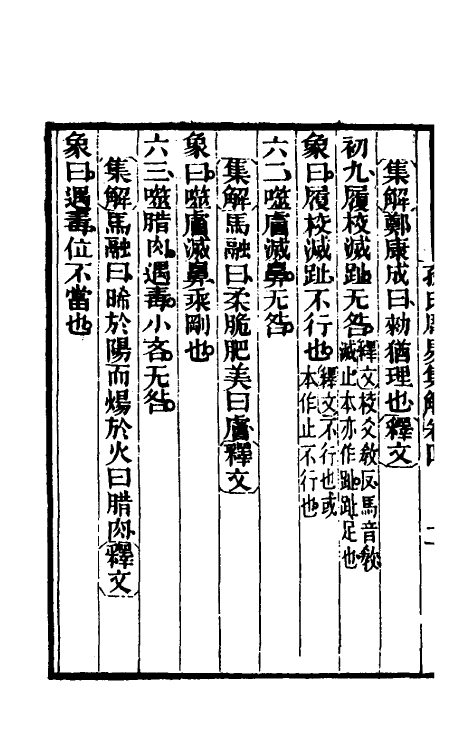 孫氏周易集解卷四 二
集解鄭康成曰勑猶理也釋文
初九履校滅趾无咎釋文校爻敎反馬音敎滅止本亦作趾趾足也
象曰履校滅趾不行也釋文不行也或本作止不行也
六二噬膚滅鼻无咎
集解馬融曰柔脆肥美曰膚釋文
象曰噬膚滅鼻乘剛也
六三噬腊肉遇毒小吝无咎
集解馬融曰晞於陽而煬於火曰腊肉釋文
象曰遇毒位不當也